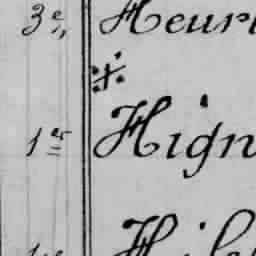 3e, Heur
1er Hign